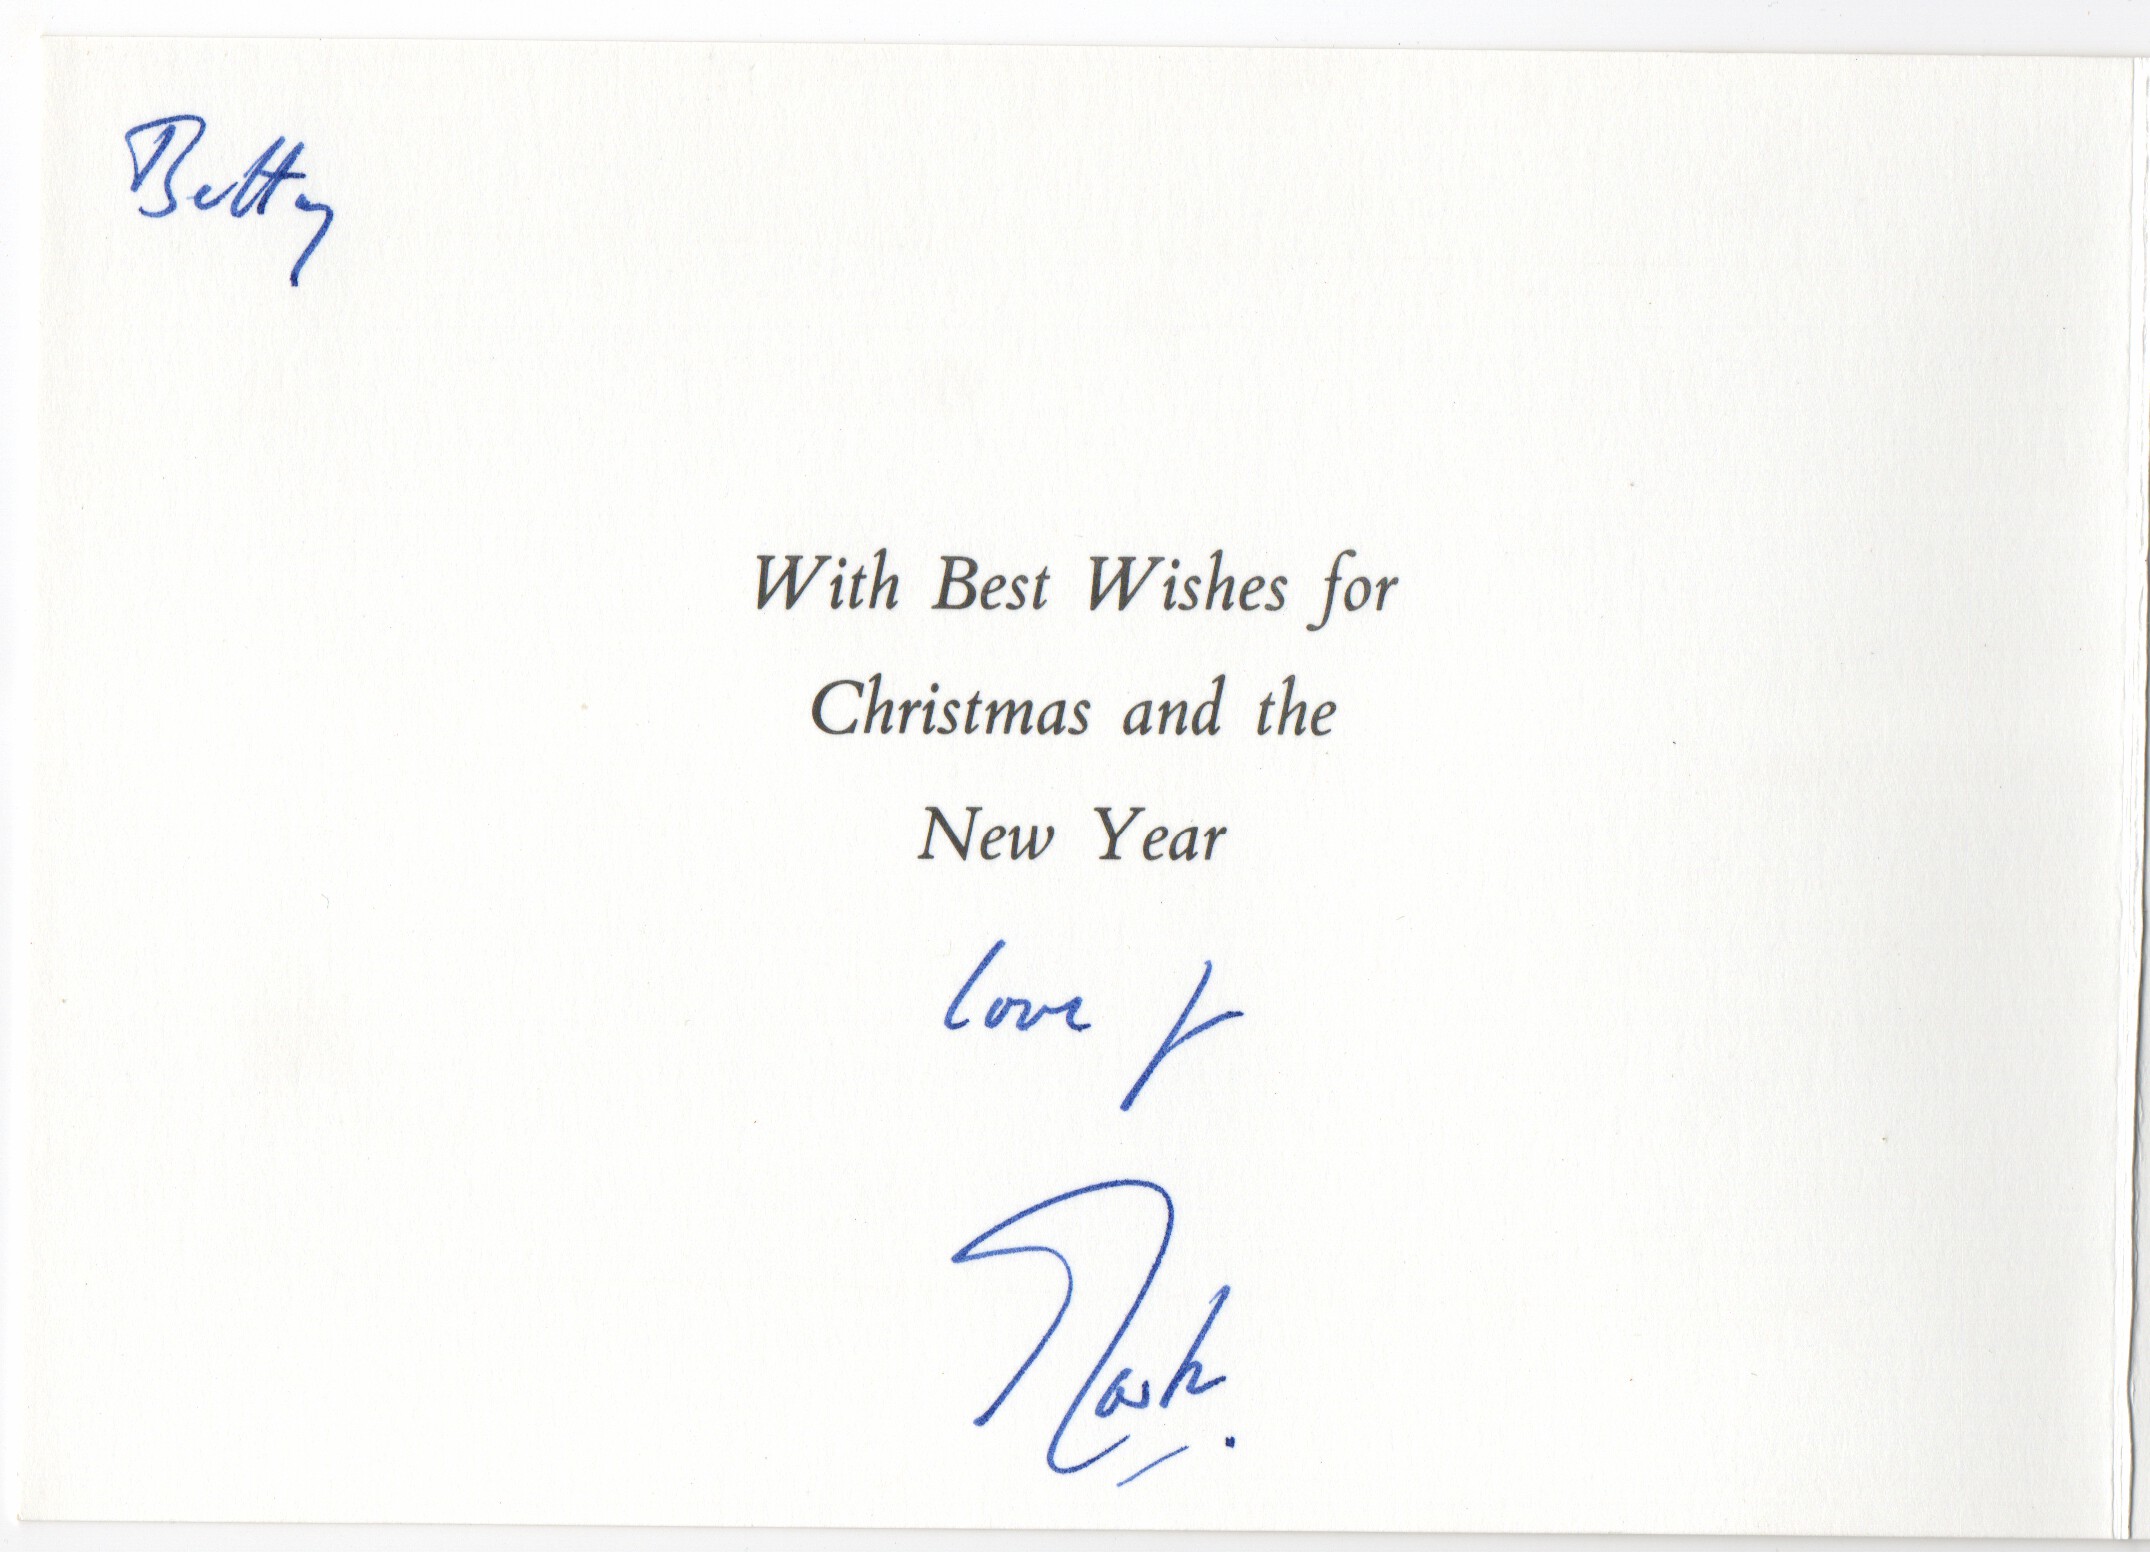 Betty
With Best Wishes for
Christmas and the
New Year
love